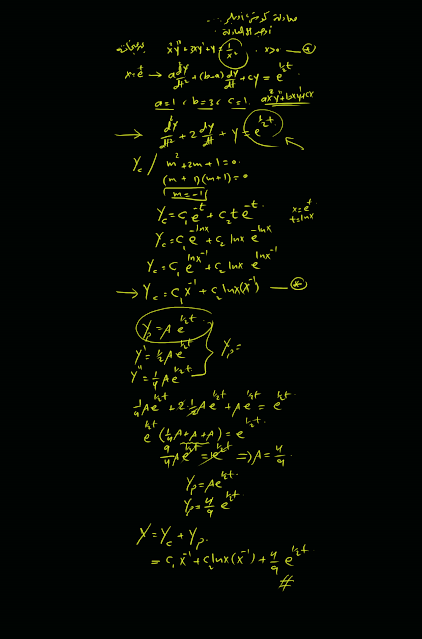 معادلة كوشي أويلر ...
x²y" + 3xy' + y = 1/x² , x>0 — *
x=e^t → a d²y/dt² + (b-a) dy/dt + cy = e^{1/2 t}
a=1 , b=3 , c=1. ax²y"+bxy'+cx
→ d²y/dt² + 2 dy/dt + y = e^{1/2 t}
Yc / m²+2m+1=0.
(m+1)(m+1)=0
m=-1
Yc = C₁e^{-t} + C₂te^{-t} x=e^t
t=lnx
Yc = C₁e^{-lnx} + C₂ lnx e^{-lnx}
Yc = C₁e^{lnx^{-1}} + C₂ lnx e^{lnx^{-1}}
→ Yc = C₁x^{-1} + C₂lnx(x^{-1}) — *
Yp = A e^{1/2 t}
Y' = 1/2 A e^{1/2 t} } Yp =
Y" = 1/4 A e^{1/2 t}
1/4 Ae^{1/2 t} + 2 · 1/2 Ae^{1/2 t} + Ae^{1/2 t} = e^{1/2 t}
e^{1/2 t} (1/4 A+A+A) = e^{1/2 t}
9/4 Ae^{1/2 t} = e^{1/2 t} ⇒ A = 4/9
Yp = Ae^{1/2 t}
Yp = 4/9 e^{1/2 t}
Y = Yc + Yp.
= C₁x^{-1} + C₂lnx(x^{-1}) + 4/9 e^{1/2 t}
#